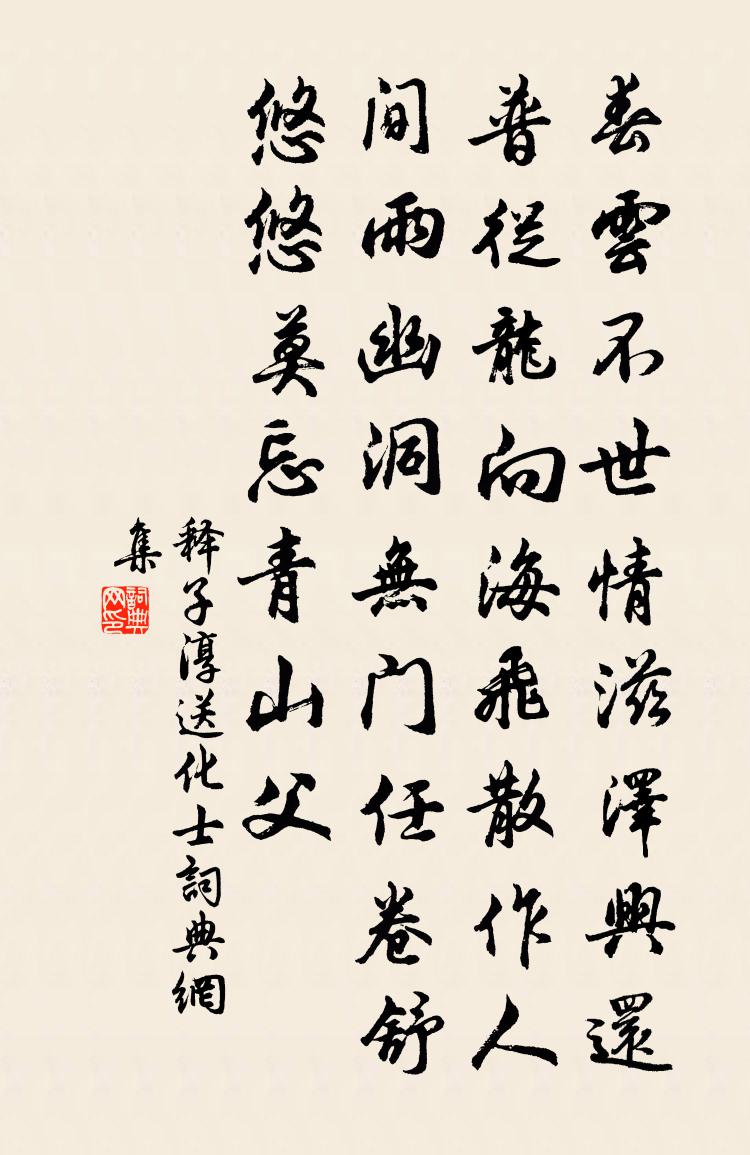 春雲不世情滋澤興還
普從龍向海飛散作人
間雨幽洞無門任卷舒
悠悠莫忘青山父
释子淳送化士詞典網
集
詞典网印